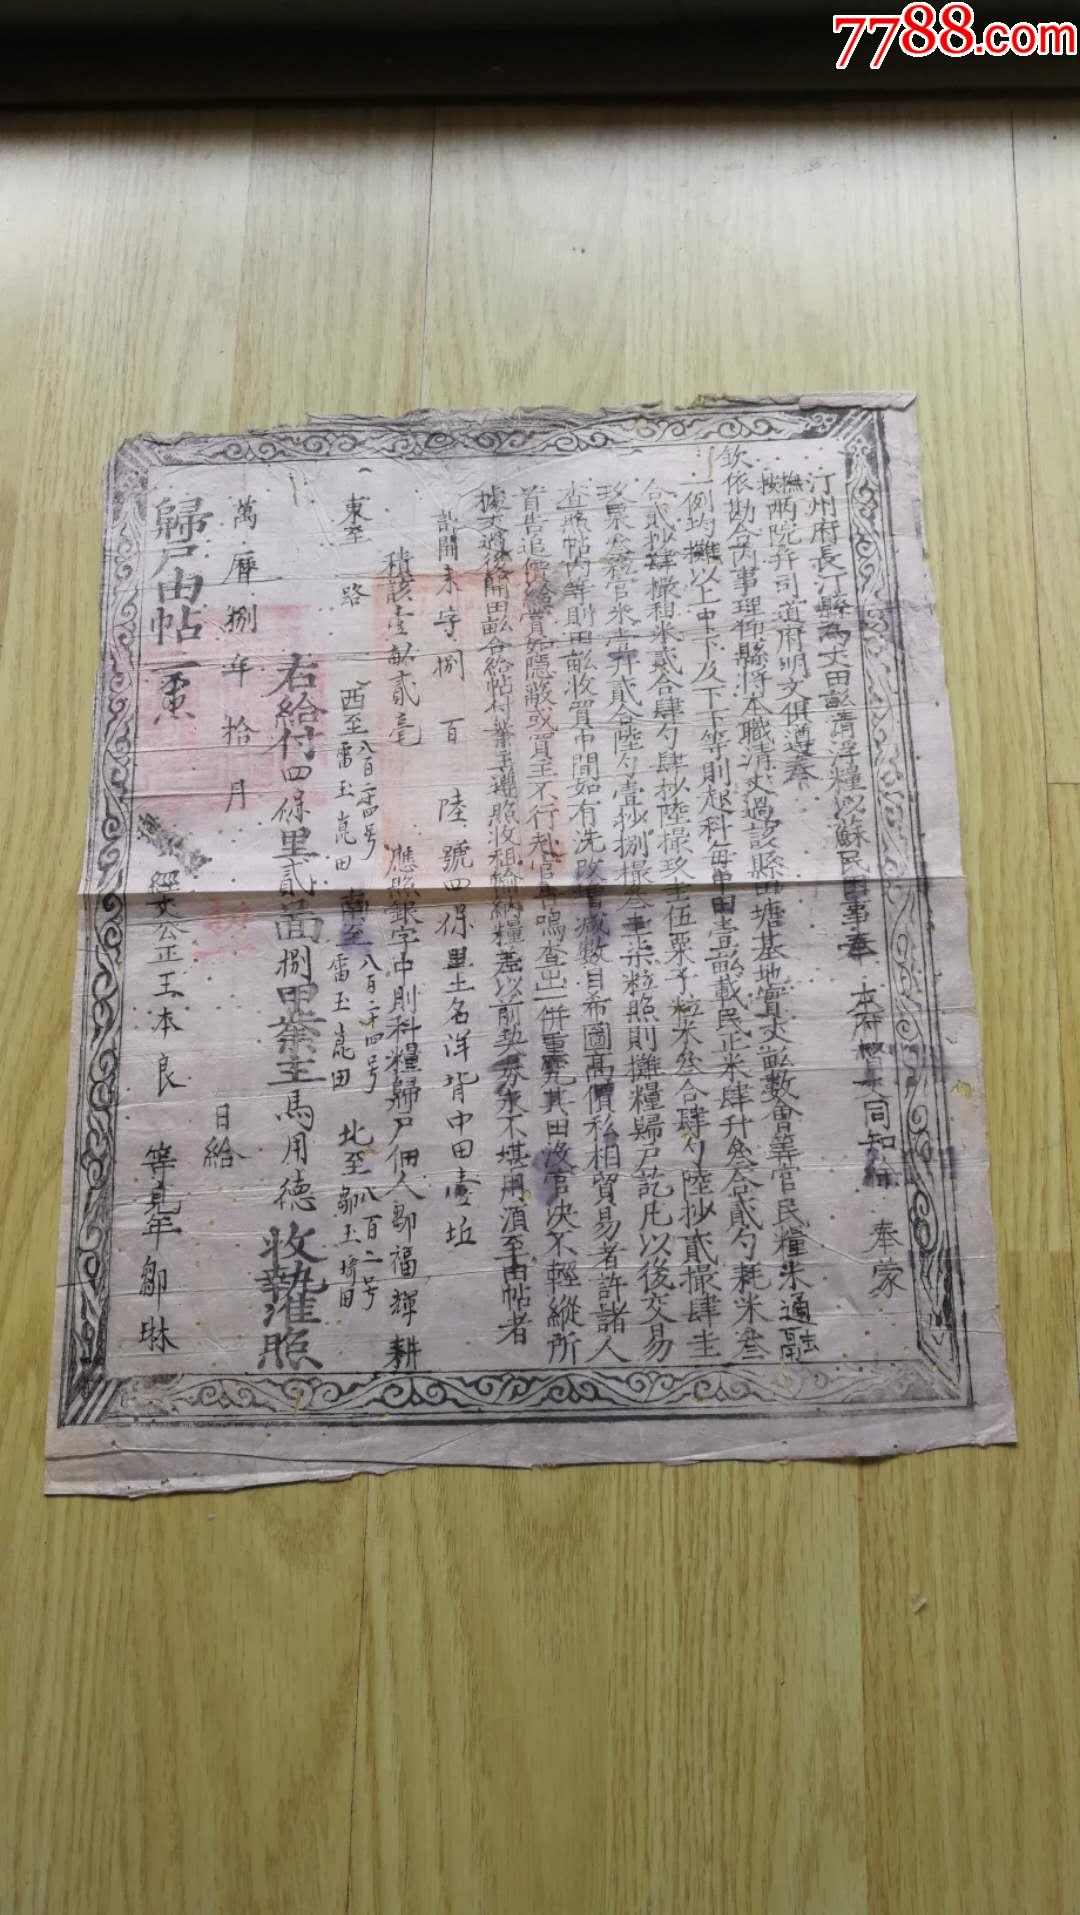 7788.com
汀州府長汀縣為丈田畝清浮糧以蘇民困事奉 本府督丈同知 奉蒙
撫按兩院并司道府明文俱遵奉
欽依勘合內事理仰縣將本職清丈過該縣田塘基地實丈畝數會筭官民糧米通融
一例均攤以上中下及下下等則起科每中田壹畝載民正米肆升叁合貳勺耗米叁
合貳抄肆撮租米貳合肆勺肆抄陸撮玖圭伍粟子粒米叁合肆勺陸抄貳撮肆圭
玖粟 官米壹升貳合陸勺壹抄捌撮叁圭柒粒照則攤糧歸戶訖凡以後交易
查照帖內等則田畝收買中間如有洗改增減數目希圖高價私相貿易者許諸人
首告追價給賞如隱蔽或買主不行赴官 鳴查出一併重究其田沒官決不輕縱所
據丈過後開田畝合給帖付業主遵照收租輸納糧差以前契券永不堪用湏至由帖者
計開 未字捌百陸號四保里土名洋背中田壹坵
積該壹畝貳毫 應照銀字中則科糧歸戶佃人鄒福輝耕
東至 路 西至八百二十四号雷玉嵬田 南至八百二十四号雷玉嵬田 北至八百二号鄒玉 田
右給付四保里貳啚捌甲業主馬用德收執准照
萬曆捌年拾月 日給
歸戶由帖 經丈公正王本良 等見年鄒琳